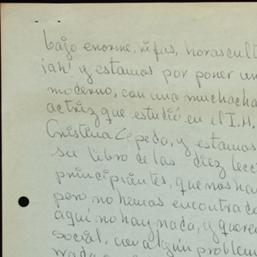 bajo enorme, rifas, horas cult
¡ah! y estamos por poner un
moderno, con una muchacha
actriz que estudió en el I.H.
Cristina Cepeda, y estamos
su libro de las diez lecc
principiantes, que nos ha
pero no hemos encontrado
aquí no hay nada, y quere
social, con algún problem